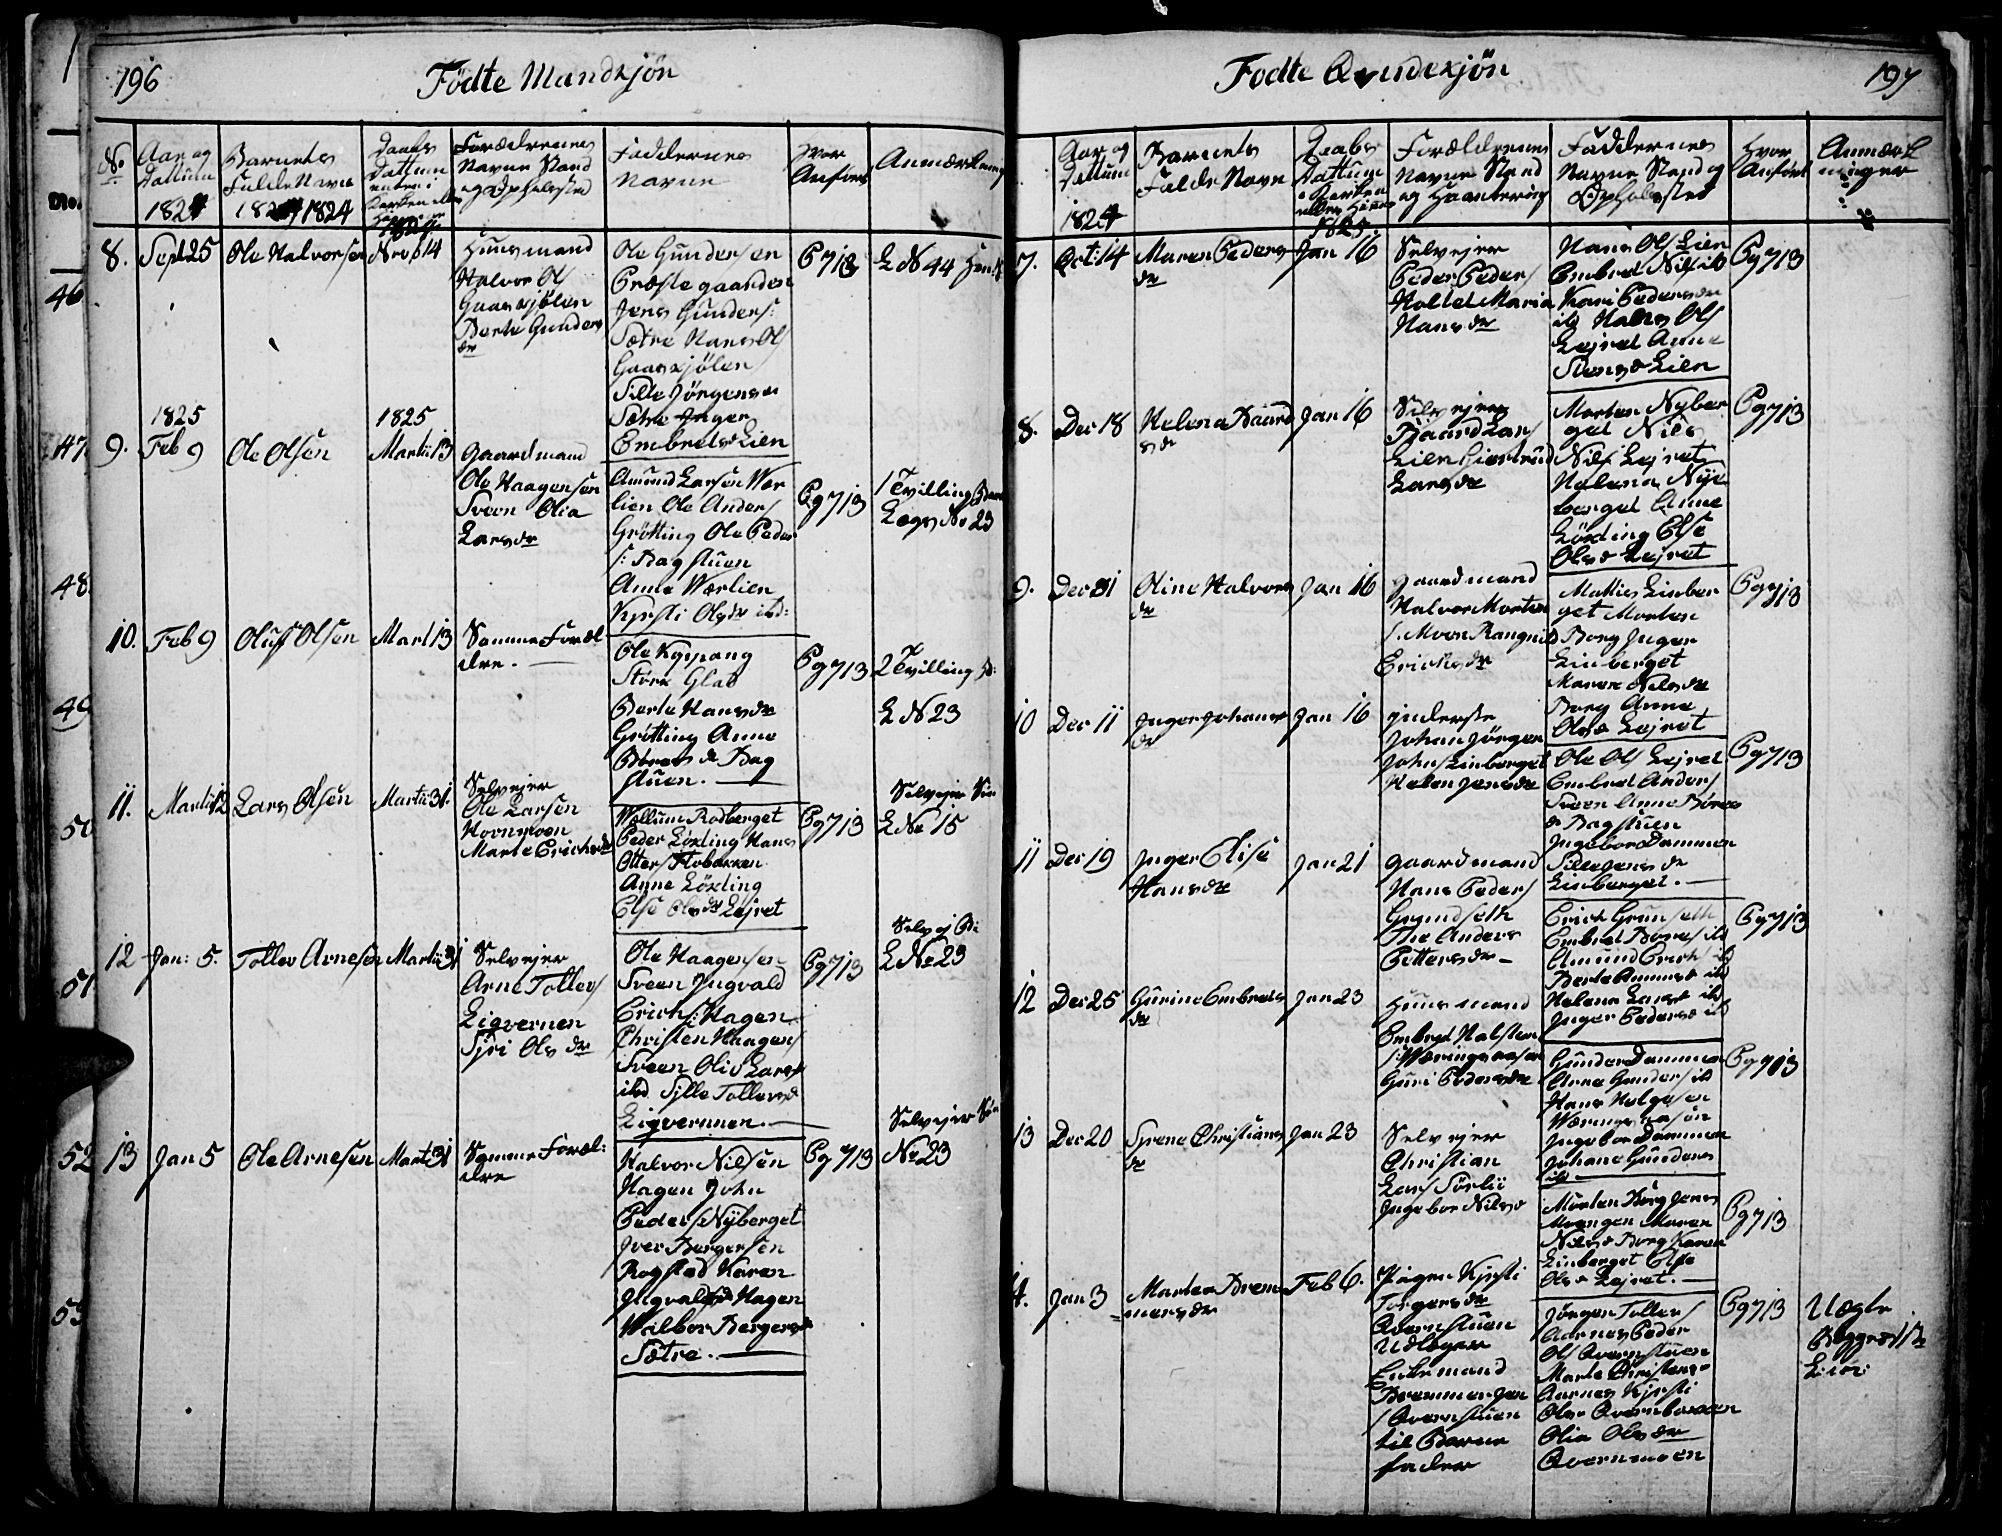 196
Födte Mandkjøn
No
Aar og
Dattum
1824
Barnets
Fulde Navn
1824
Daabs
Dattum
1824
Forældrenes
Navne Stand
og Opholdssted
Faddernes
Navne
Hvor
Anført
Anmærkning
8.
Sept 25
Ole Halvorsen
Novb 14
Huusmand
Halvor Ols
Gaaskjølen
Berte Gunders
dr
Ole Gundersen
Præstegaarden
Jens Gunders:
Sætre Hans Ols
Gaaskjølen
Sille Jörgensdr
Sætre Inger
Embretsd Lien
Pg 713
L No 44
1825
9.
Feb 9
Ole Olsen
1825
Martii 13
Gaardmand
Ole Haagensen
Sveen Olia
Larsdr
Amund Larsen Wær
lien Ole Anders
Grötting Ole Peder
s: Bagstuen
Anne Wærlien
Kjrsti Olsdr ibd:
Pg 713
1 Tvilling Barn
Lægs No 23
10.
Feb 9
Oluf Olsen
Mart 13
Samme Foræl
dre.
Ole Kyppang
Stórk Glad
Berte Hansdr
Grötting Anne
Börresd Bag
stuen.
Pg 713
2 Tvilling
L N 23
11.
Martii 12
Lars Olsen
Martii 31.
Selvejer
Ole Larsen
Hornmoen
Marte Erichsdr
Wællum Rodberget
Peder Löxting Hans
Otters Flobakken
Anne Löxting
Else Olsdr Lejret
Pg 713
Selvejer Sön
L No 15
12
Jan: 5.
Tollev Arnesen
Martii 31
Selvejer
Arne Tollevs
Ligvernen
Sjri Olsdr
Ole Haagensen
Sveen Ingvald
Erichs: Hagen
Christen Haagens
Sveen Olia Larsd
ibd Sille Tollevsd
Ligvernnen.
Pg 713
L No 23
13
Jan 5
Ole Arnesen
Mart 31
Samme Foræl:
dre
Halvor Nilsen
Hagen John
Peders Nyberget
Iver Bergersen
Rogstad Karen
Ingvaldsd Hagen
Walbor Bergersd
Sætre.
Pg 713
Selvejer Sön
No 23
46
47
48
49
50
51
52
53
Fodte Qvindekjön
197
Aar og
Dattum
1824
Barnets
Fulde Navn
Daabs
Dattum
1825.
Forældrenes
Navne Stand
og Haantering
Faddernes
Navne Stand og
Opholdssted
Hvor
Anført
Anmærk
ninger
7.
Oct: 14
Maren Peders
dr
Jan 16
Selvejer
Peder Peders
Holtet Maria
Hansdr
Hans Ols Lien
Embret Nils ib
Kari Pedersdr
ib Hans Ols
Lejret Anne
Stensd Lien
Pg 713
8.
Dec 18
Helena Baard
sdr
Jan 16
Selvejer
Baard Lars
Lien Giertrud
Larsdr
Morten Nyber
get Nils
Nils Lejret
Helena Nye
berget Anne
Löxting Else
Olsd Lejret
Pg 713
9.
Dec 31
Oline Halvors
dr
Jan 16
Gaardmand
Halvor Morten
s. Moen Rangnild
Erichsdr
Mathis Linber
get Morten
Borg Inger
Linberget
Maren Nilsdr
Borg Anne
Olsd Lejret
Pg 713
10
Dec 11
Inger Johans
dr
Jan 16
Inderste
Johan Jörgen
Johns Linberget
Helen Jensdr
Ole Ols Lejret
Embret Anders
Sveen Anne Börres
dr Bagstuen
Ingebor Dammen
Sille Jensdr
Linberget.
Pg 713
11
Dec 19
Inger Elise
Hansdr
Jan 21
Gaardmand
Hans Peders
Grundseth
Anders
Pettersdr
Erich Grunseth
Embret Börres ib
Amund Erichs ib
Berte Ammesd ib
Helena Larsd ib
Inger Pedersd ib
Pg 713
12
Dec 25
Gurine Embrets
dr
Jan 23
Huusmand
Embret Halsten
s: Wæringsaasen
Guri Pedersdr
Gunder Dammen
Arne Gunders ib
Hans Helgesen
Wæringsaasön
Ingebor Dammen
Johane Gunders
ib
Pg 713
13
Dec 20
Syrene Christians
dr
Jan 23
Selvejer
Christian
Lars Sörlii
Ingebor Nilsd
Morten Borg Jens
Moengen Maren
Nilsd Borg Karen
Linberget Else
Olsd Lejret.
Pg 713
14.
Jan 3
Marten Brem
mersdr
Feb 6.
Pigen Kjrsti
Torgersdr
Qvernstuen
Udlægger
Enkemand
Bremmer Jen
s Qvernstuen
til Barne
fader
Jörgen Tollevs
Aarnes Peder
Ols Qvernstuen
Marte Christensd
Aarnes Kjrsti
Olsd Qvernbakken
Olia Olsdr
Qvernmoen
Pg 713
Uægte